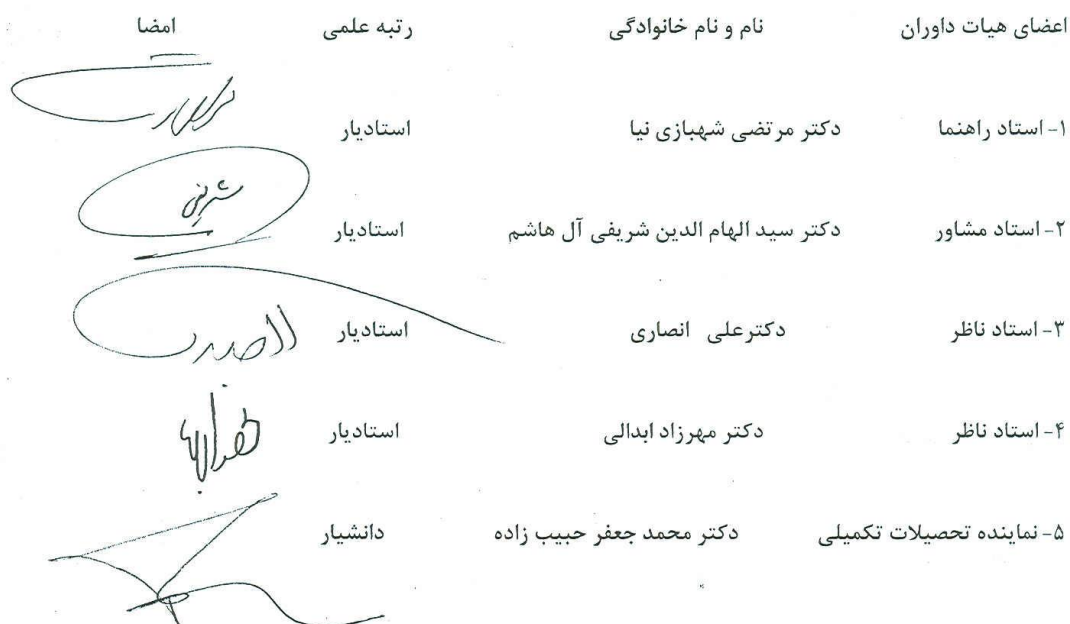 اعضای هیات داوران نام و نام خانوادگی رتبه علمی امضا
۱- استاد راهنما دکتر مرتضی شهبازی نیا استادیار
۲- استاد مشاور دکتر سید الهام الدین شریفی آل هاشم استادیار
شریفی
۳- استاد ناظر دکترعلی انصاری استادیار
۴- استاد ناظر دکتر مهرزاد ابدالی استادیار
۵- نماینده تحصیلات تکمیلی دکتر محمد جعفر حبیب زاده دانشیار